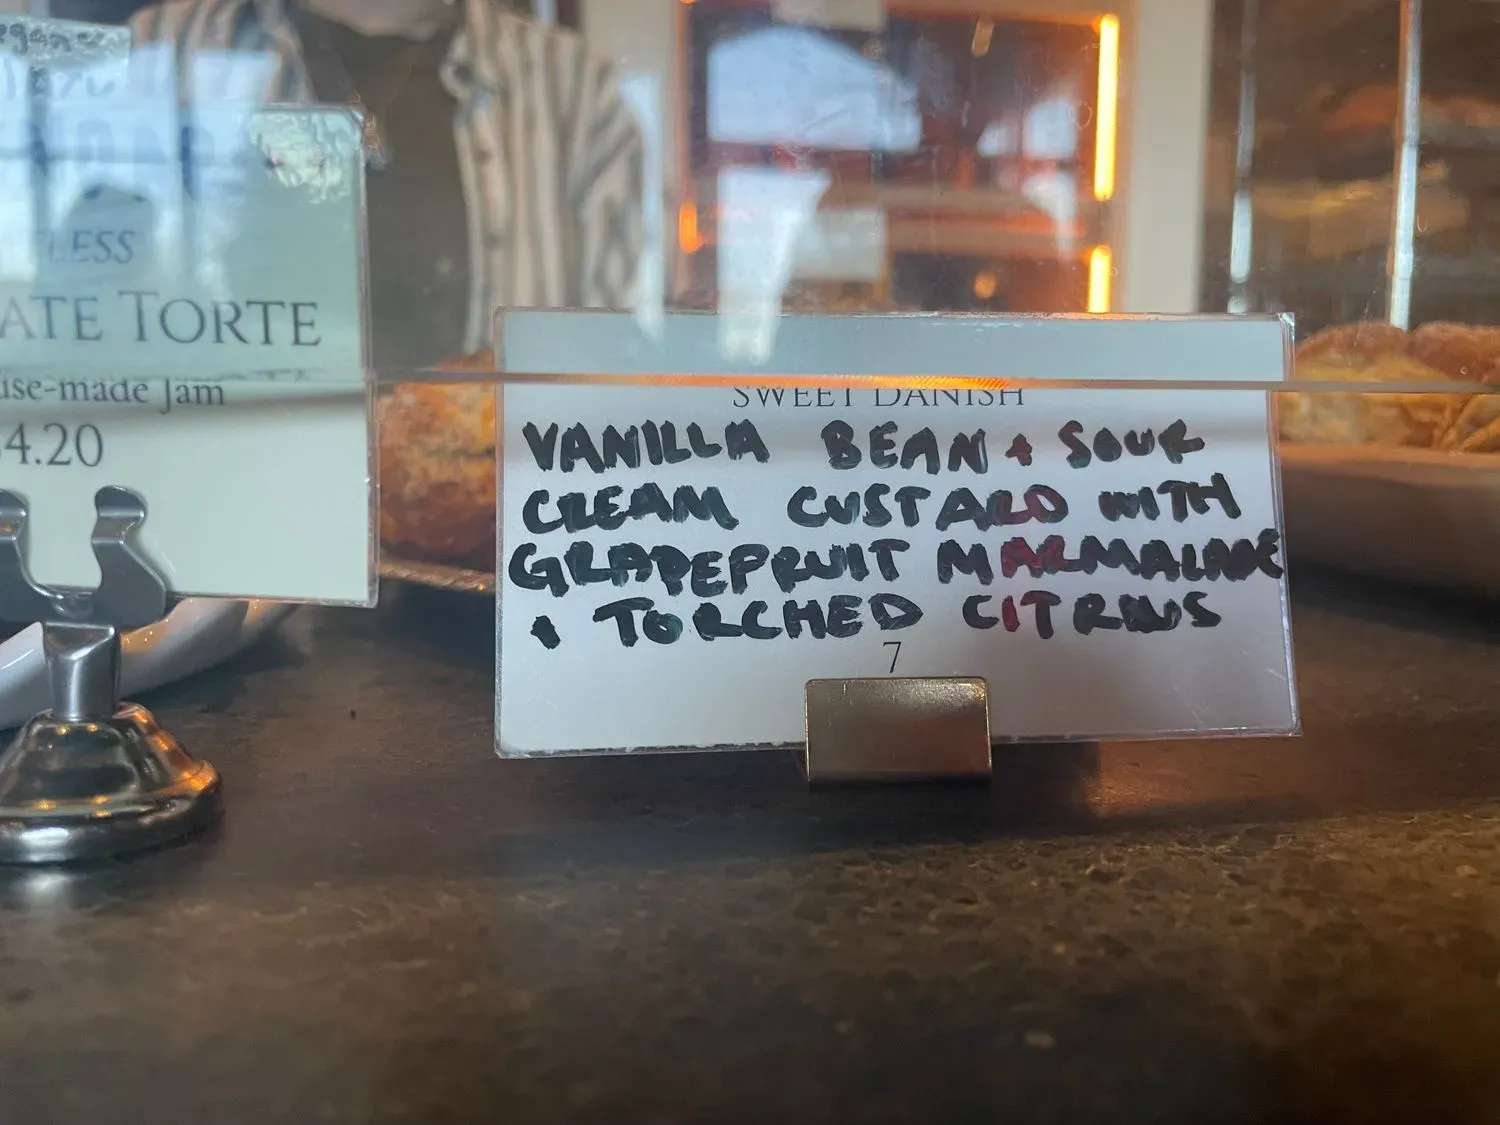 LESS
ATE TORTE
use-made Jam
4.20
SWEET DANISH
VANILLA BEAN + SOUR
CREAM CUSTARD WITH
GRAPEFRUIT MARMALADE
+ TORCHED CITRUS
7